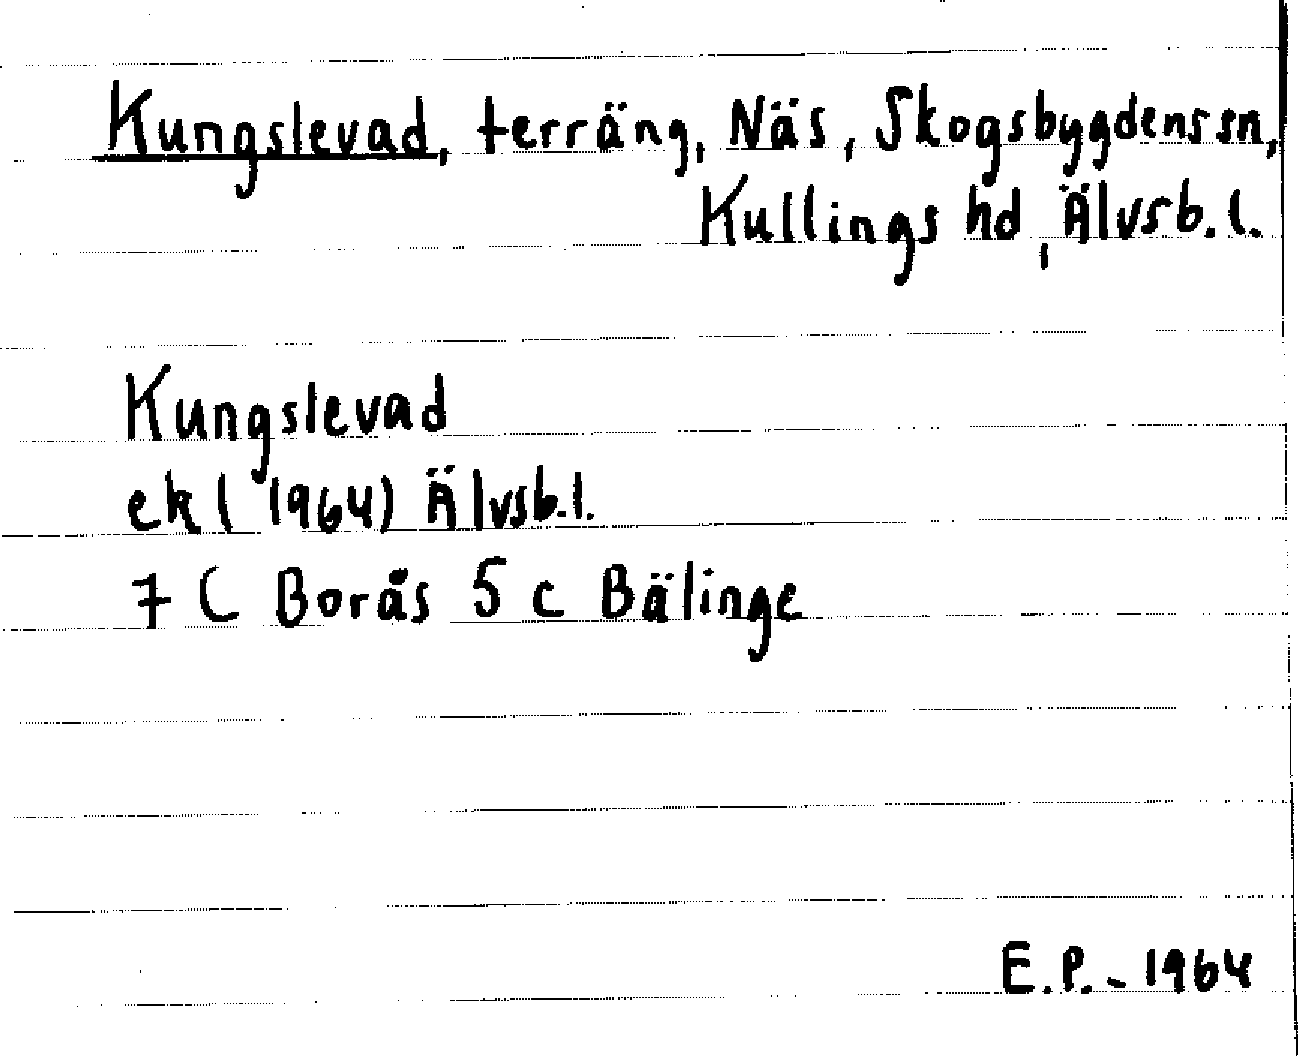 Kungslevad, terräng, Näs, Skogsbygdens sn,
Kullings hd, Älvsb. l.
Kungslevad
ek (1964) Älvsb. l.
7 C Borås 5 c Bälinge
E.P. - 1964